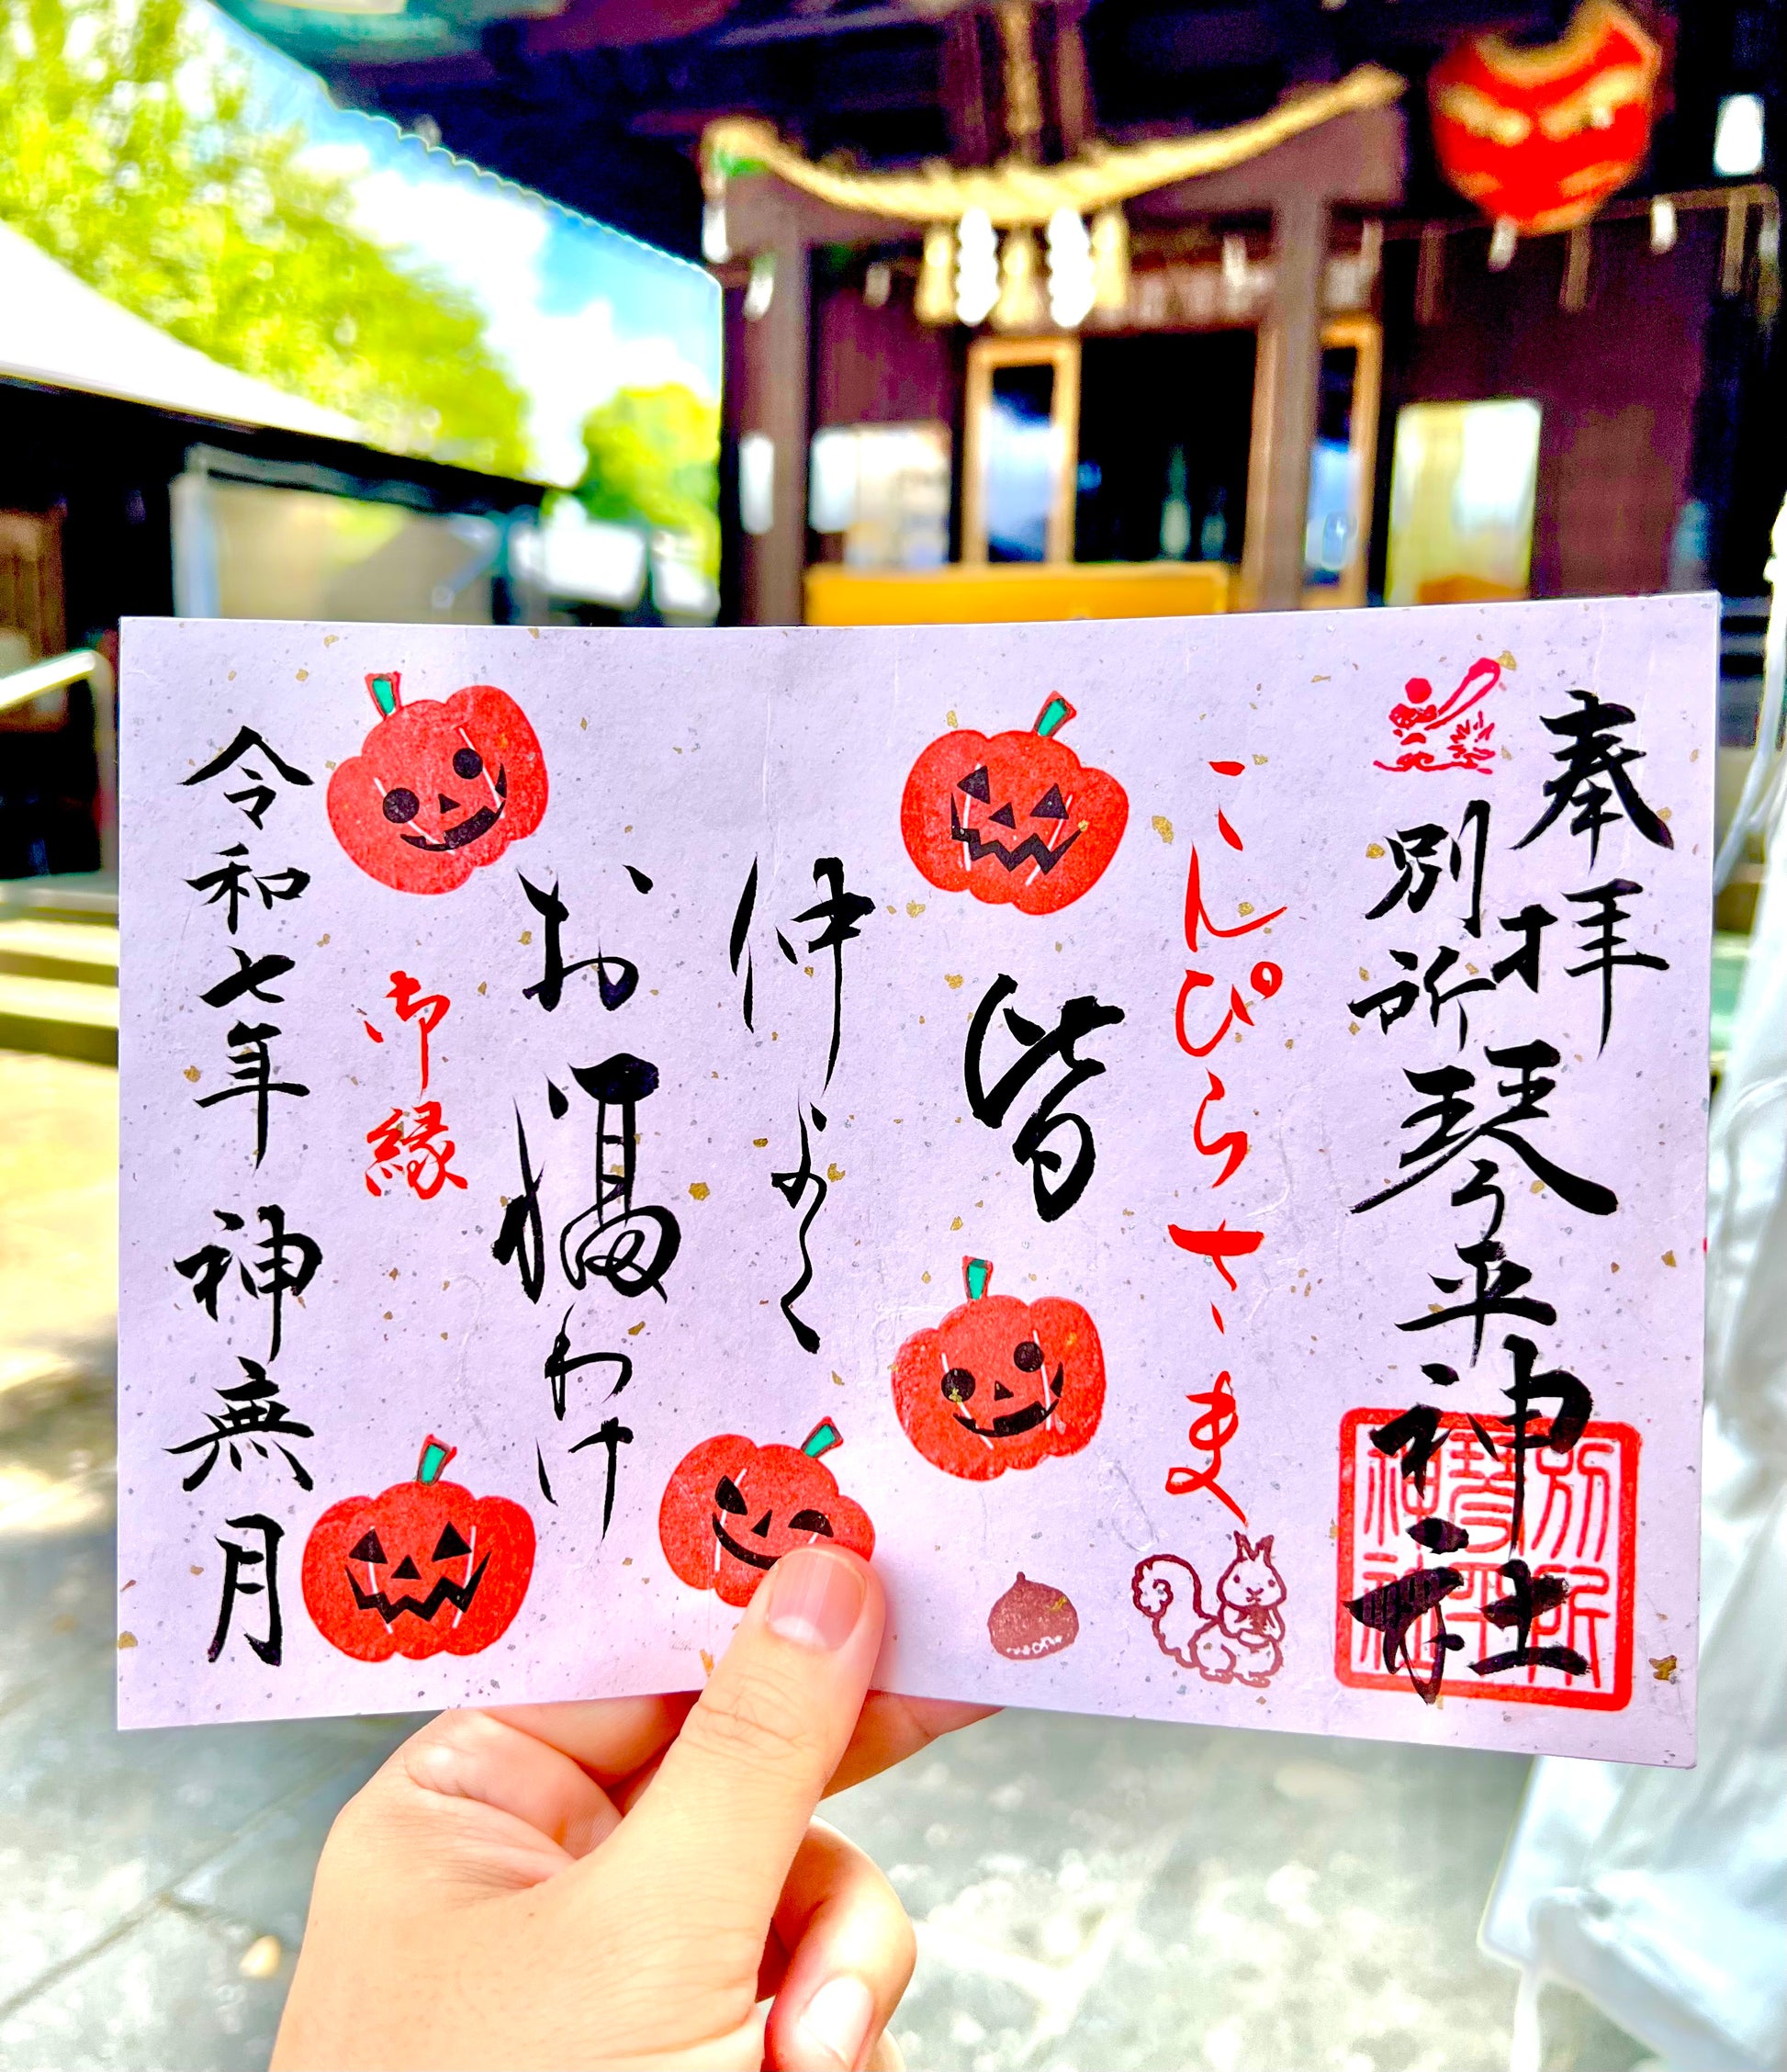 奉拝
別所琴平神社
別所
琴平
神社
こんぴらさま
皆
仲よく
お福わけ
御縁
令和七年神無月